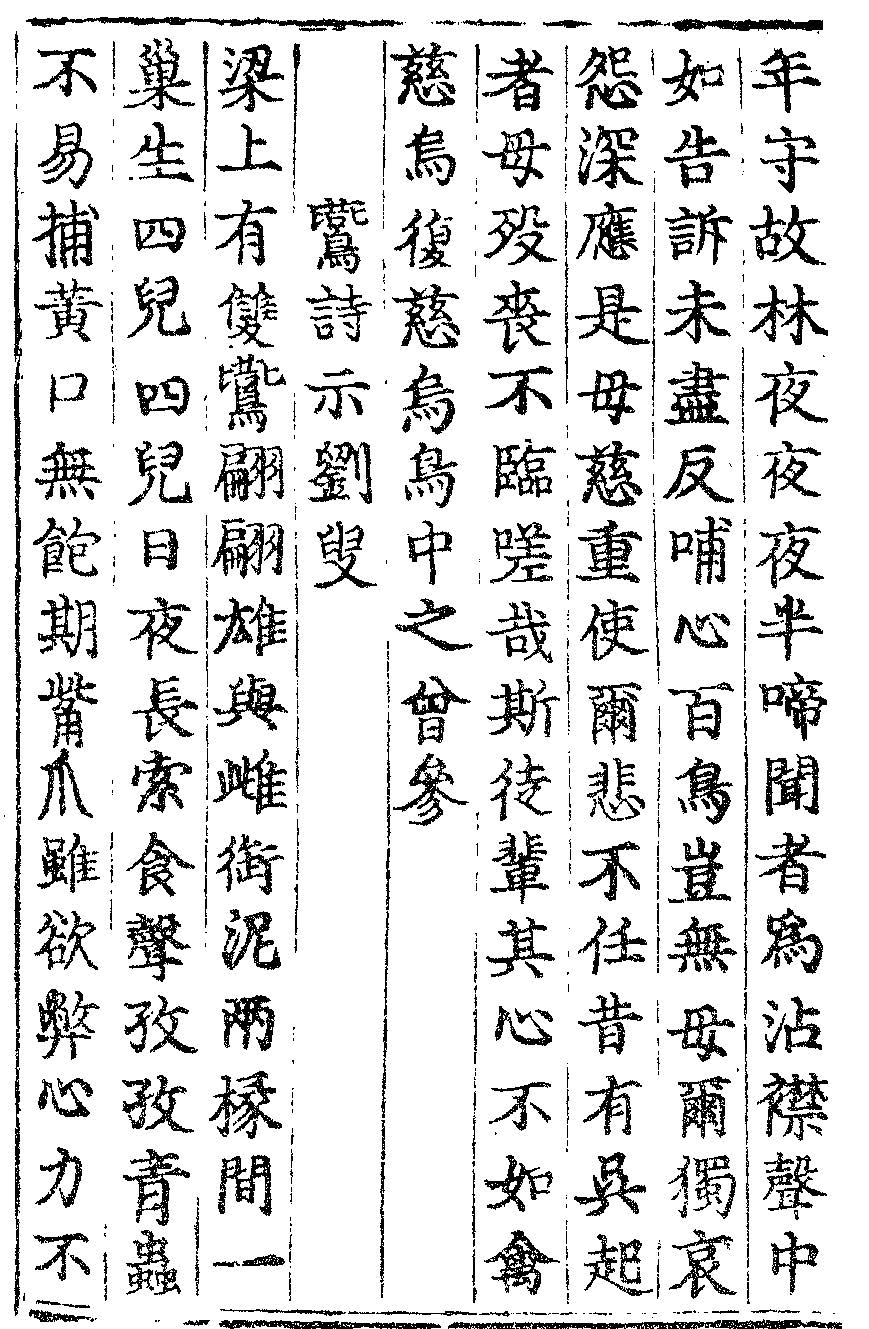 年守故林夜夜夜半啼聞者爲沾襟聲中
如告訴未盡反哺心百鳥豈無母爾獨哀
怨深應是母慈重使爾悲不任昔有吳起
者母歿喪不臨嗟哉斯徒輩其心不如禽
慈烏復慈烏鳥中之曾參
鷰詩示劉叟
梁上有雙鷰翩翩雄與雌銜泥兩椽間一
巢生四兒四兒日夜長索食聲孜孜青蟲
不易捕黃口無飽期觜爪雖欲弊心力不